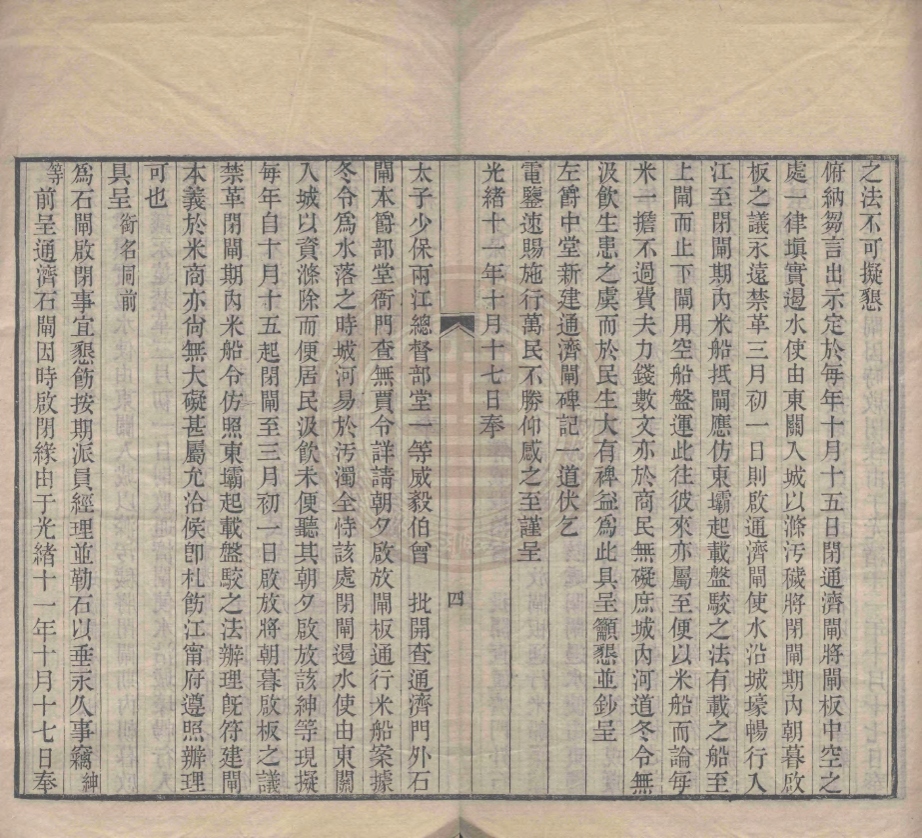 之法不可擬懇
俯納芻言出示定於每年十月十五日閉通濟閘將閘板中空之
處一律塡實遏水使由東關入城以滌汚穢將閉閘期內朝暮啟
板之議永遠禁革三月初一日則啟通濟閘使水沿城壕暢行入
江至閉閘期內米船抵閘應仿東壩起載盤駮之法有載之船至
上閘而止下閘用空船盤運此往彼來亦屬至便以米船而論每
米一擔不過費夫力錢數文亦於商民無礙庶城內河道冬令無
汲飲生患之虞而於民生大有裨益爲此具呈籲懇並鈔呈
左爵中堂新建通濟閘碑記一道伏乞
電鑒速賜施行萬民不勝仰感之至謹呈
光緒十一年十月十七日奉
四
太子少保兩江總督部堂一等威毅伯曾　批開查通濟門外石
閘本爵部堂衙門查無賈令詳請朝夕啟放閘板通行米船案據
冬令爲水落之時城河易於汚濁全恃該處閉閘遏水使由東關
入城以資滌除而便居民汲飲未便聽其朝夕啟放該紳等現擬
每年自十月十五起閉閘至三月初一日啟放將朝暮啟板之議
禁革閉閘期內米船令仿照東壩起載盤駮之法辦理旣符建閘
本義於米商亦尙無大礙甚屬允洽侯卽札飭江甯府遵照辦理
可也
具呈銜名同前
爲石閘啟閉事宜懇飭按期派員經理並勒石以垂永久事竊紳
等前呈通濟石閘因時啟閉緣由于光緒十一年十月十七日奉